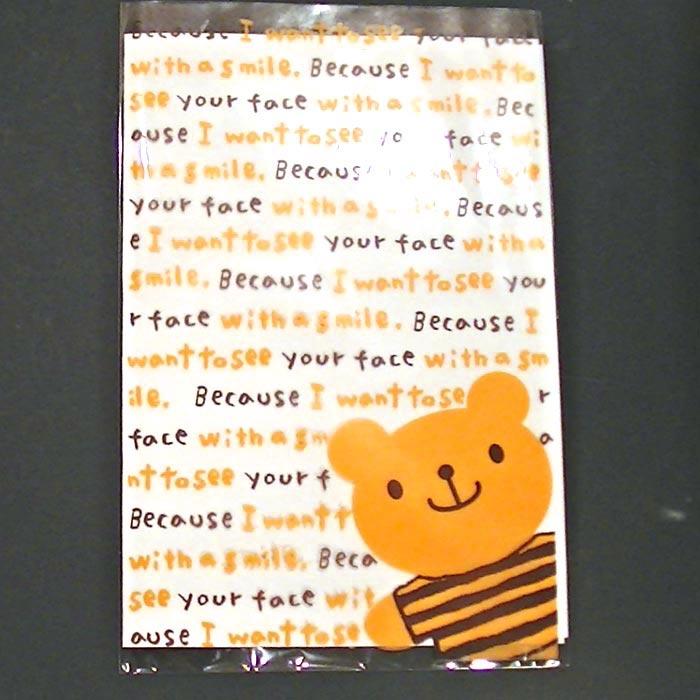 Because I want to see your face
with a smile. Because I want to
see your face with a smile. Bec
ause I want to see yo face wi
th a smile. Becaus want to see
your face with a s Becaus
e I want to see your face with a
smile. Because I want to see you
r face with a smile. Because I
want to see your face with a sm
ile. Because I want to se r
face with a sm a
nt to see your f
Because I want t
with a smile. Beca
see your face wit
ause I want to se